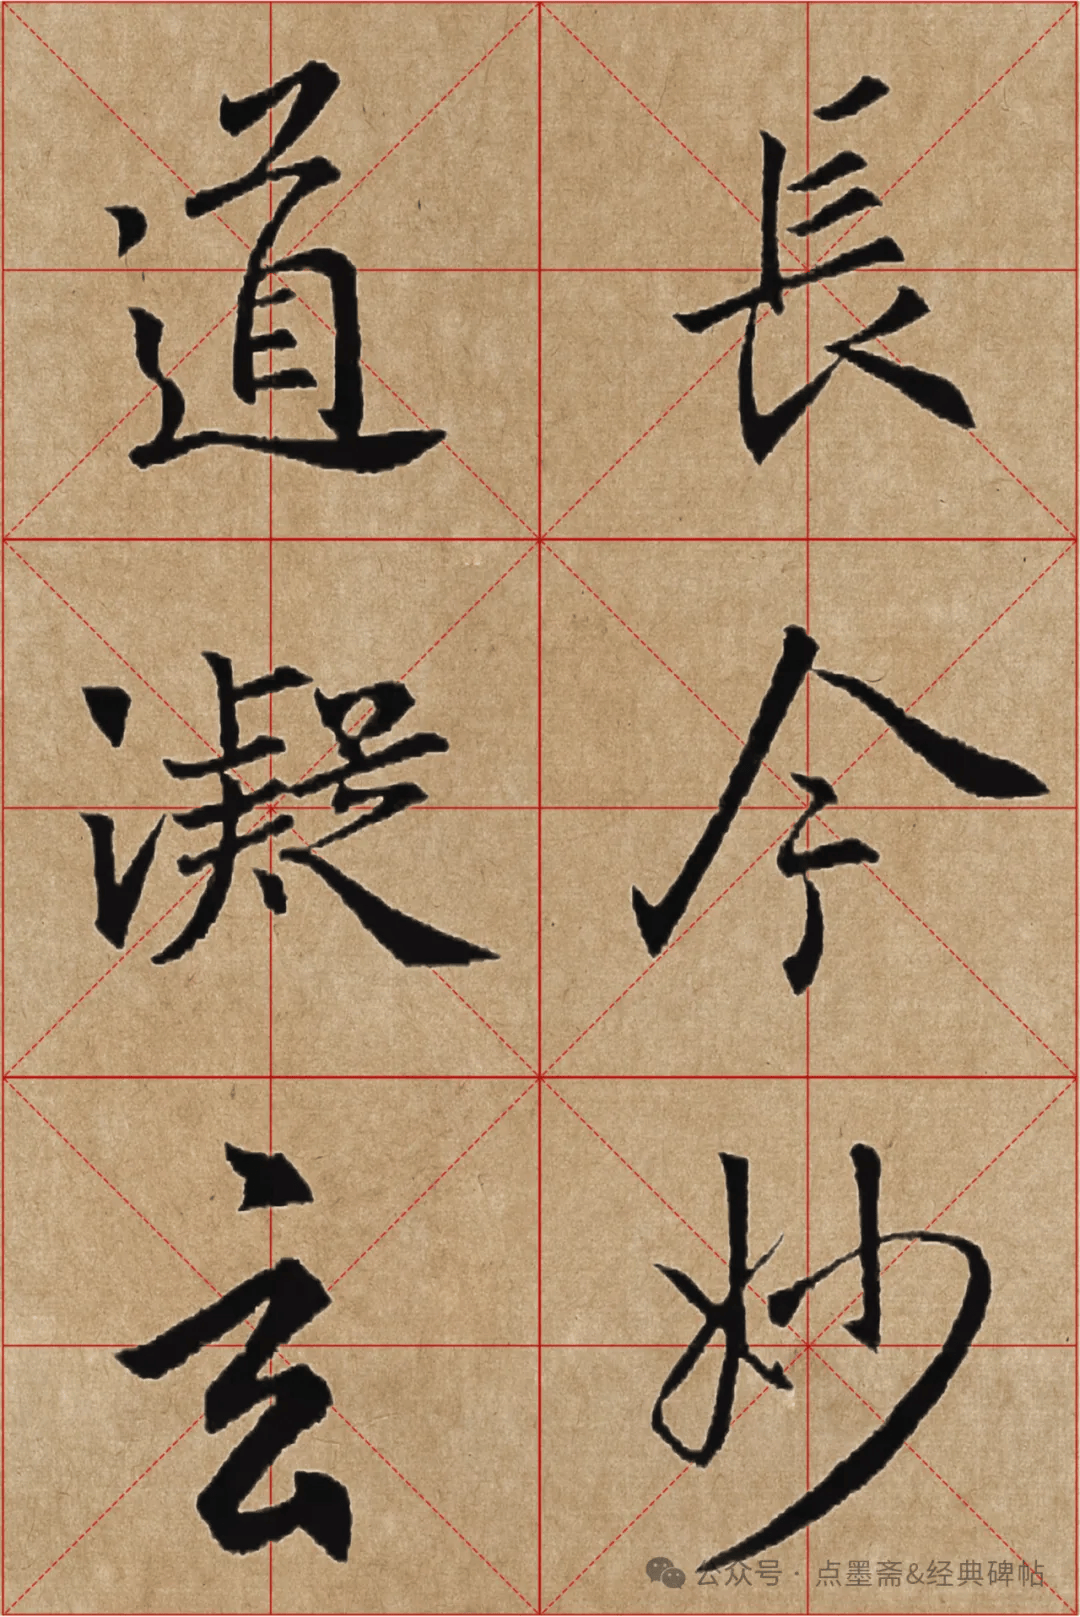 長今妙
道凝玄
公众号 · 点墨斋&经典碑帖